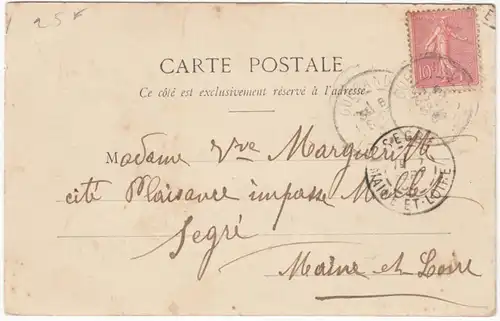 25 F
CARTE POSTALE
Ce côté est exclusivement réservé à l'adresse
10c
Madame Vve Marguerite
SEGRÉ
MAINE-ET-LOIRE
cité Plaisance impasse
Segré
Maine et Loire